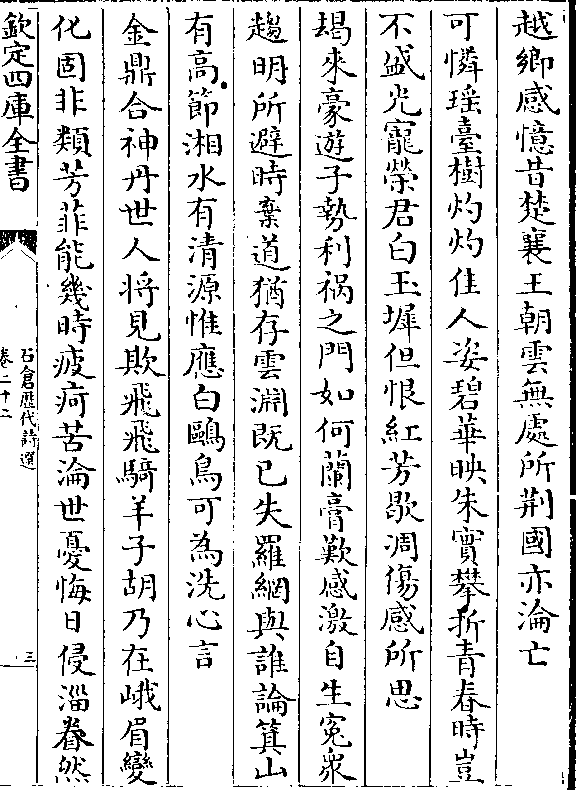 越鄉感憶昔楚襄王朝雲無處所荆國亦淪亡
可憐瑶臺樹灼灼佳人姿碧華映朱實攀折青春時豈
不盛光寵榮君白玉墀但恨紅芳歇凋傷感所思
朅來豪遊子勢利禍之門如何蘭膏歎感激自生寃衆
趨明所避時棄道猶存雲淵既已失羅網與誰論箕山
有高節湘水有清源惟應白鷗鳥可為洗心言
金鼎合神丹世人将見欺飛飛騎羊子胡乃在峨眉變
化固非類芳菲能幾時疲疴苦淪世憂悔日侵淄眷然
欽定四庫全書
石倉歷代詩選
卷二十二
三